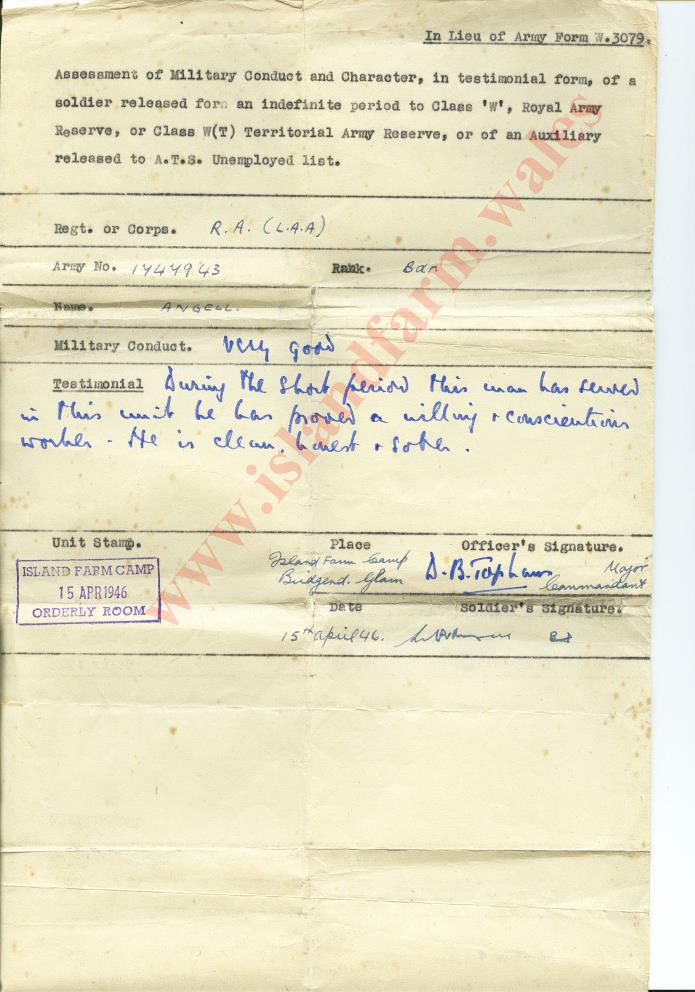 In Lieu of Army Form W.3079.
Assessment of Military Conduct and Character, in testimonial form, of a
soldier released forn an indefinite period to Class 'W', Royal Army
Reserve, or Class W(T) Territorial Army Reserve, or of an Auxiliary
released to A.T.S. Unemployed list.
Regt. or Corps. R.A. (L.A.A)
Army No. 1747943 Rank. Bdr
Name. ANGELL.
Military Conduct. Very good
Testimonial During the short period this man has served
in this unit he has proved a willing + conscientious
worker - He is clean, honest + sober.
Unit Stamp. Place Officer's Signature.
ISLAND FARM CAMP
15 APR 1946
ORDERLY ROOM
Island Farm Camp
Bridgend. Glam
D.B. Topham Major
Commandant
Date Soldier's Signature.
15th April 46.
www.islandfarm.wales